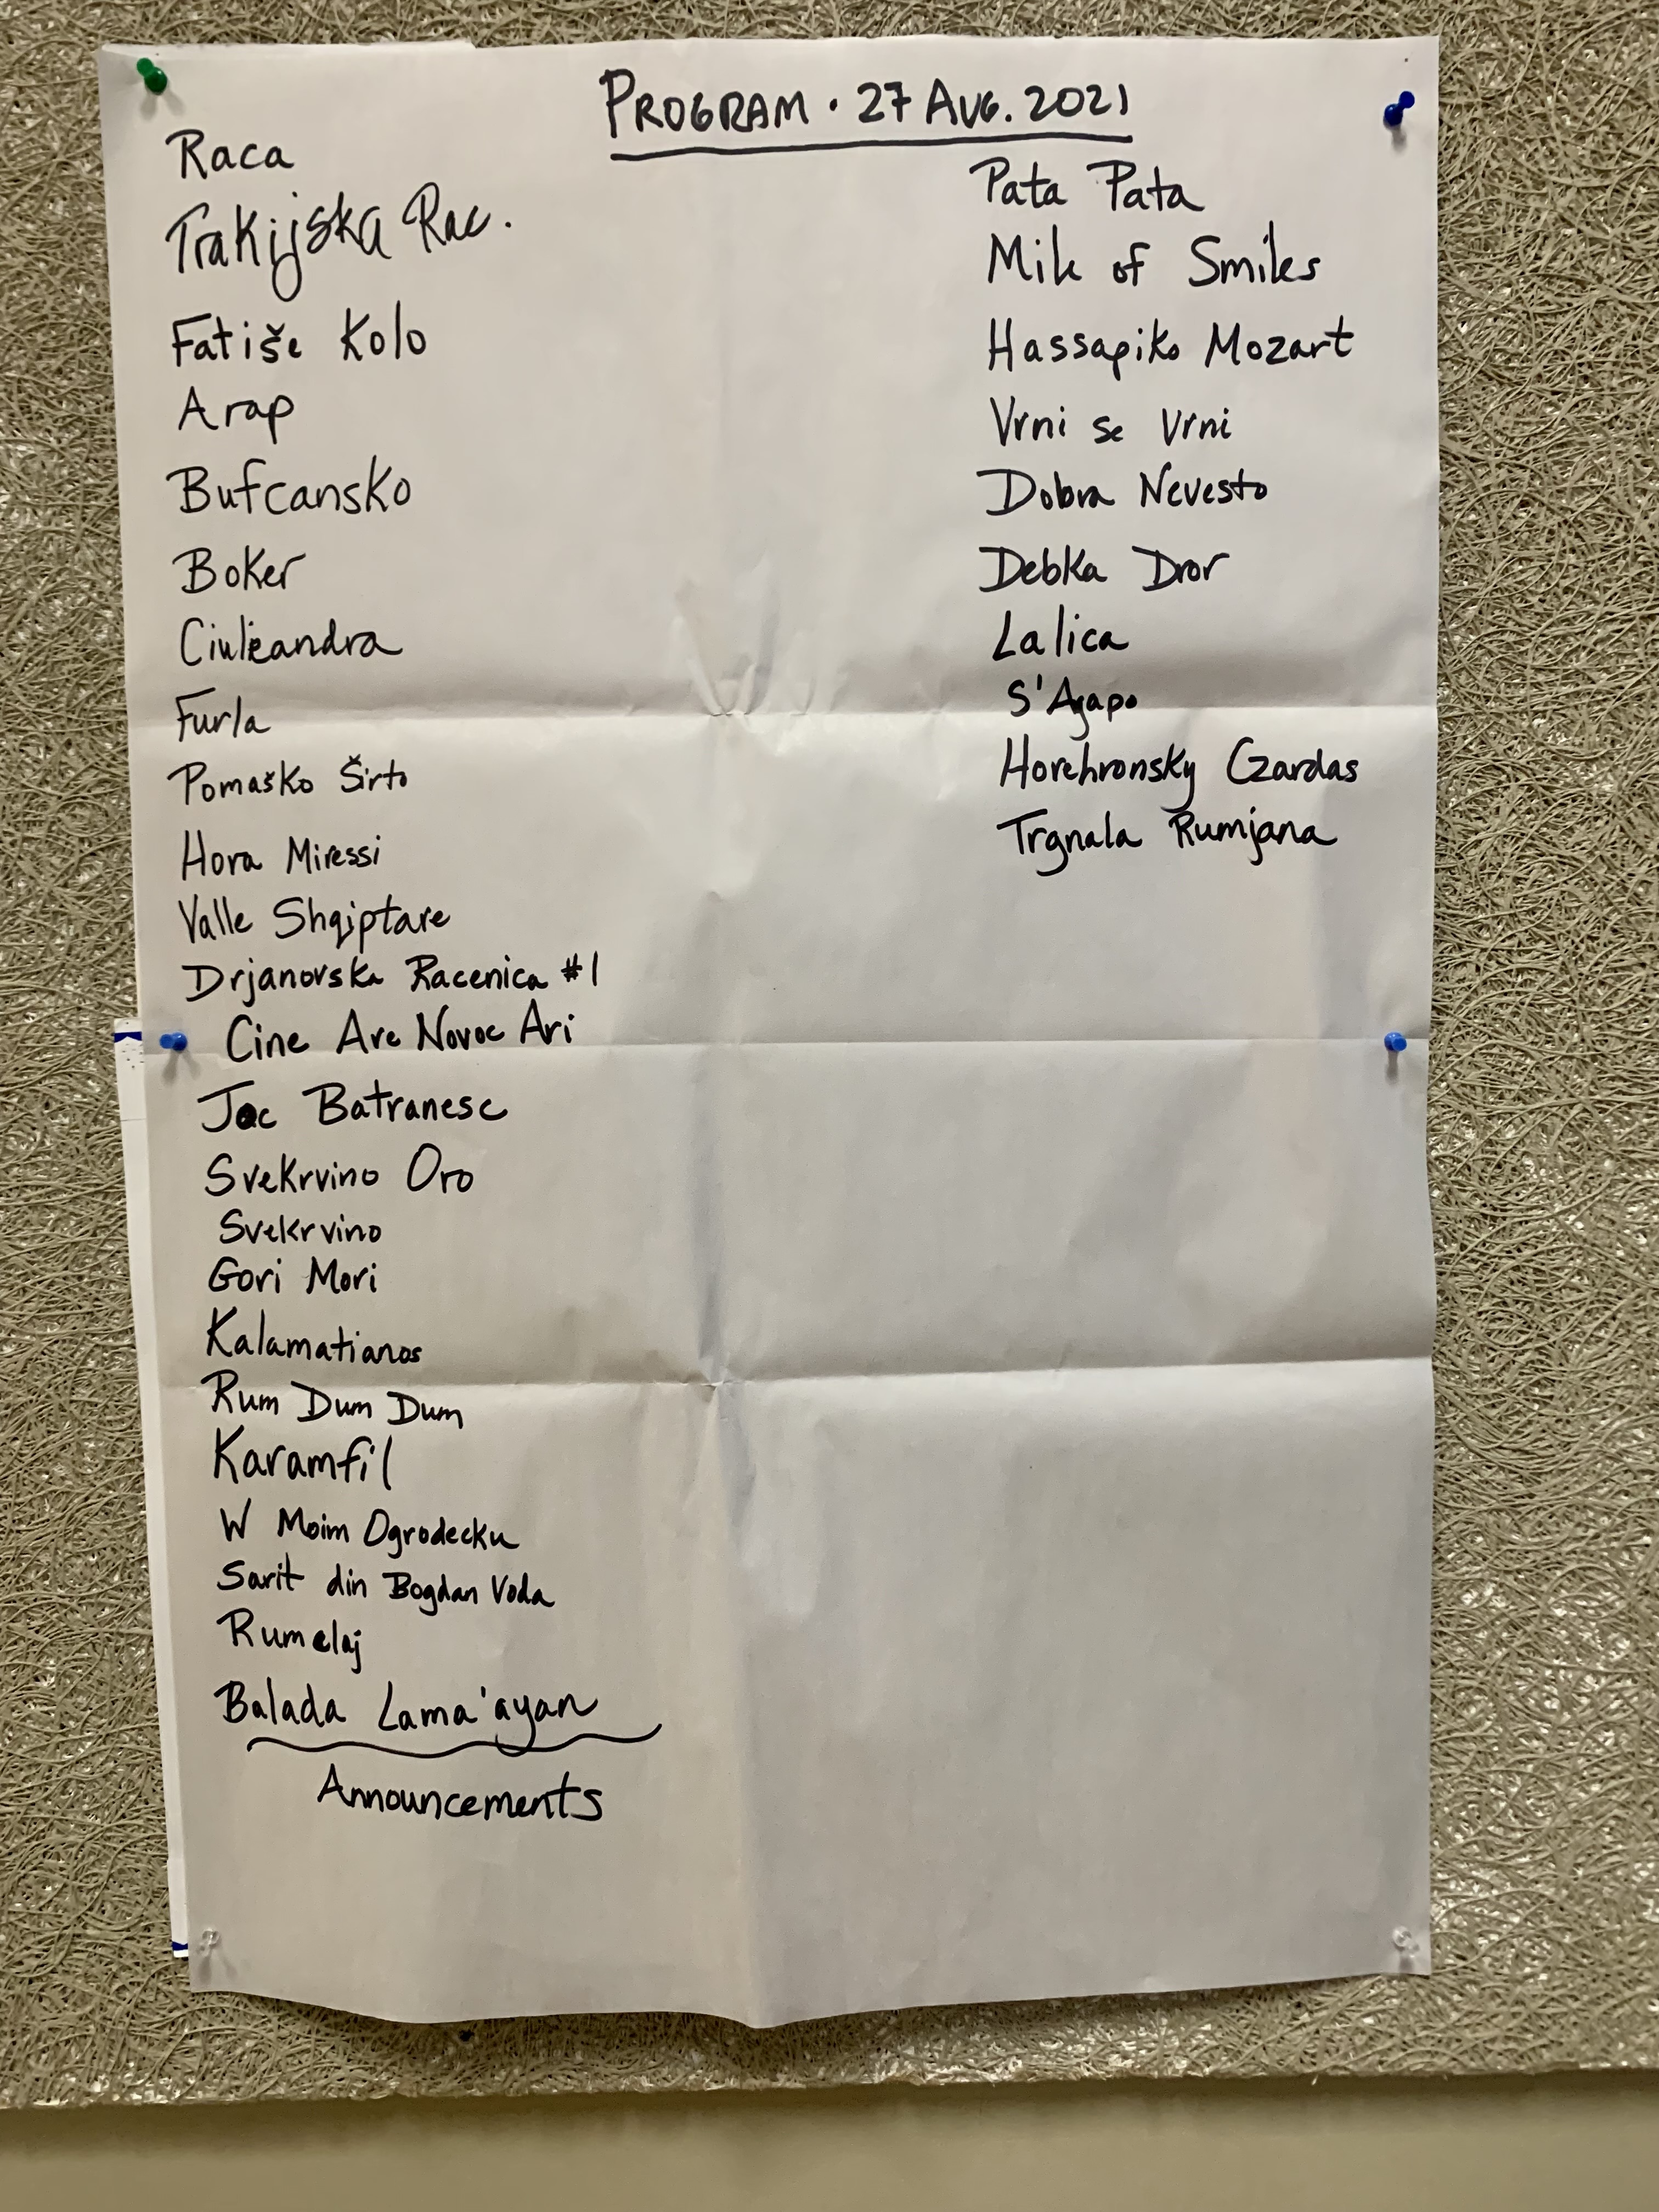 PROGRAM · 27 AUG. 2021
Raca
Trakijska Rac.
Fatiše Kolo
Arap
Bufcansko
Boker
Ciuleandra
Furla
Pomaško Širto
Hora Miressi
Valle Shqiptare
Drjanovska Racenica #1
Cine Are Noroc Ari
Joc Batranesc
Svekrvino Oro
Svekrvino
Gori Mori
Kalamatianos
Rum Dum Dum
Karamfil
W Moim Ogrodecku
Sarit din Bogdan Voda
Rumelaj
Balada Lama'ayan
Announcements
Pata Pata
Mile of Smiles
Hassapiko Mozart
Vrni se Vrni
Dobra Nevesto
Debka Dror
Lalica
S'Agapo
Horehronsky Czardas
Trgnala Rumjana